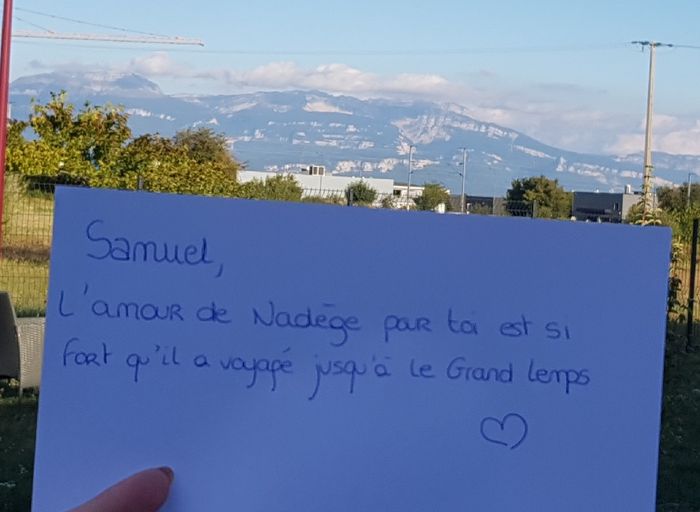 Samuel,
L'amour de Nadège par toi est si
fort qu'il a voyagé jusqu'à le Grand Lemps